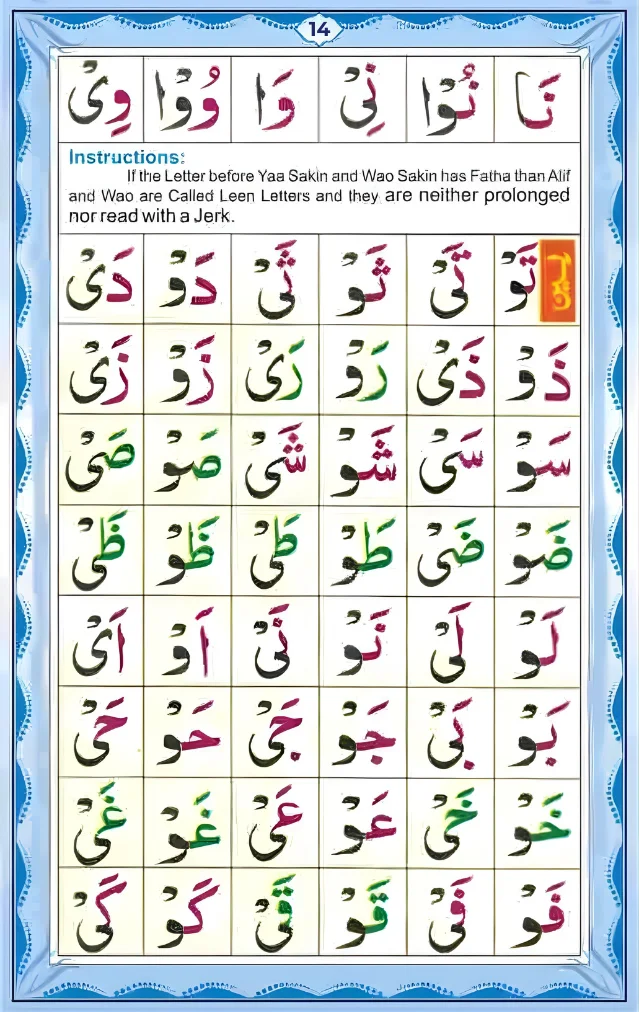 14
نَا نُوْا نِىْ وَا وُوْا وِىْ
Instructions:
If the Letter before Yaa Sakin and Wao Sakin has Fatha than Alif
and Wao are Called Leen Letters and they are neither prolonged
nor read with a Jerk.
لین تَوْ تَىْ ثَوْ ثَىْ دَوْ دَىْ
ذَوْ ذَىْ رَوْ رَىْ زَوْ زَىْ
سَوْ سَىْ شَوْ شَىْ صَوْ صَىْ
ضَوْ ضَىْ طَوْ طَىْ ظَوْ ظَىْ
لَوْ لَىْ نَوْ نَىْ اَوْ اَىْ
بَوْ بَىْ جَوْ جَىْ حَوْ حَىْ
خَوْ خَىْ عَوْ عَىْ غَوْ غَىْ
فَوْ فَىْ قَوْ قَىْ كَوْ كَىْ